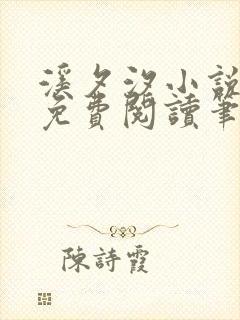 溪夕汐小說
免費閱讀筆
陳詩霞